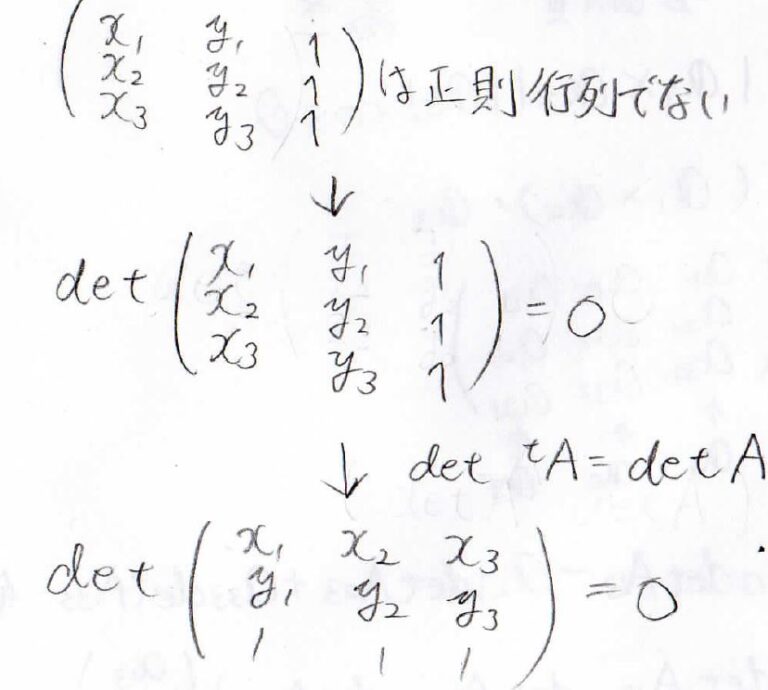 ( x₁ y₁ 1
x₂ y₂ 1
x₃ y₃ 1 ) は正則行列でない
↓
det ( x₁ y₁ 1
x₂ y₂ 1
x₃ y₃ 1 ) = 0
↓ det ᵗA = det A
det ( x₁ x₂ x₃
y₁ y₂ y₃
1 1 1 ) = 0